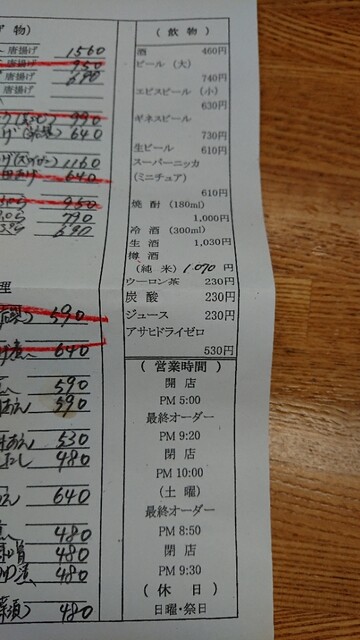 物)
唐揚げ 1560
唐揚げ 950
唐揚げ 690
990
640
1160
640
950
790
690
理
590
640
590
590
530
480
640
480
480
480
480
(飲物)
酒 460円
ビール (大)
740円
エビスビール (小)
630円
ギネスビール
730円
生ビール 610円
スーパーニッカ
(ミニチュア)
610円
焼酎 (180ml)
1,000円
冷酒 (300ml)
生酒 1,030円
樽酒
(純米) 1070円
ウーロン茶 230円
炭酸 230円
ジュース 230円
アサヒドライゼロ
530円
(営業時間)
開店
PM 5:00
最終オーダー
PM 9:20
閉店
PM 10:00
(土曜)
最終オーダー
PM 8:50
閉店
PM 9:30
(休日)
日曜・祭日